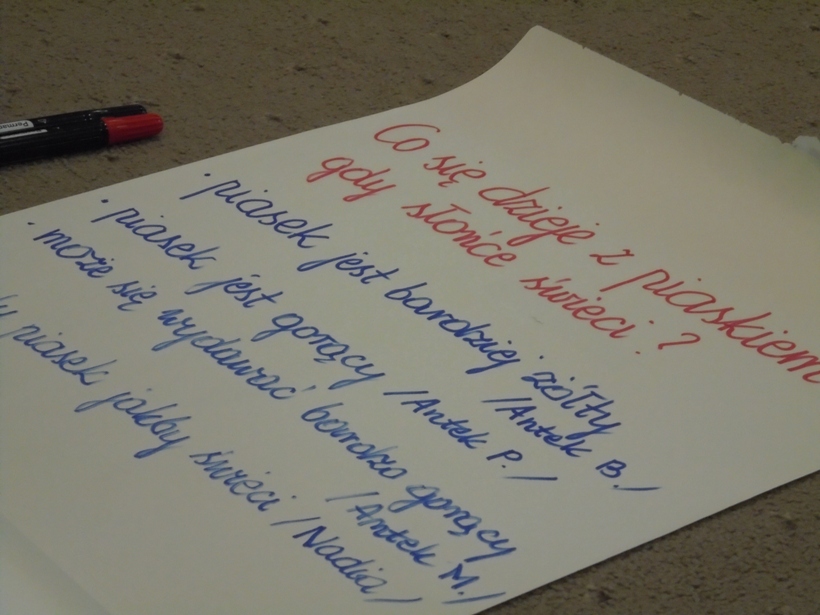 Co się dzieje z piaskiem
gdy słońce świeci?
· piasek jest bardziej żółty
/Antek B./
· piasek jest gorący /Antek P./
· może się wydawać bardzo gorący
/Antek M./
piasek jakby świeci /Nadia/